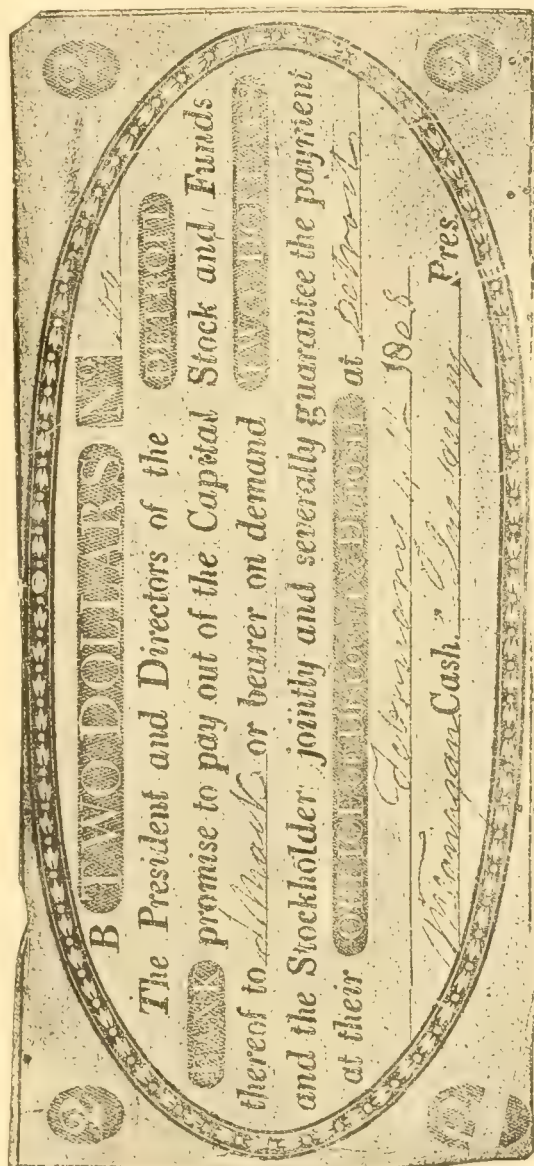 2 2
B TWO DOLLARS No.
The President and Directors of the DETROIT
BANK promise to pay out of the Capital Stock and Funds
thereof to or bearer on demand TWO DOLLARS
and the Stockholder jointly and severally guarantee the payment
at their OFFICE of DISCOUNT & DEPOSIT at Detroit
February 1808
Cash. Pres.
2 2